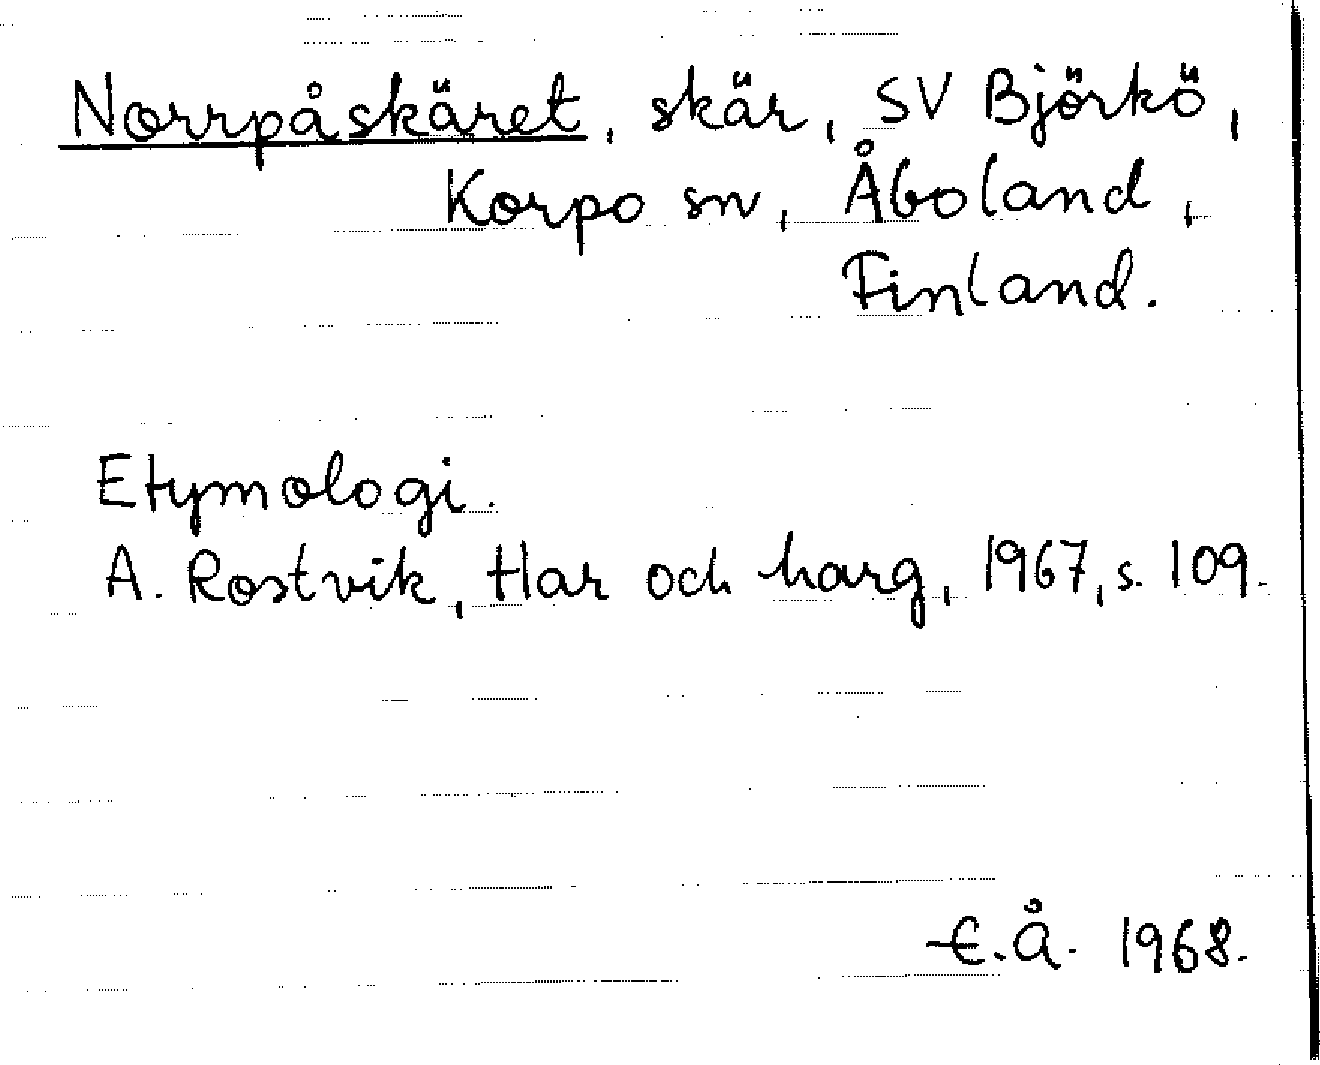 Norrpåskäret, skär, SV Björkö,
Korpo sn, Åboland,
Finland.
Etymologi.
A. Rostvik, Har och harg, 1967, s. 109.
E.Å. 1968.